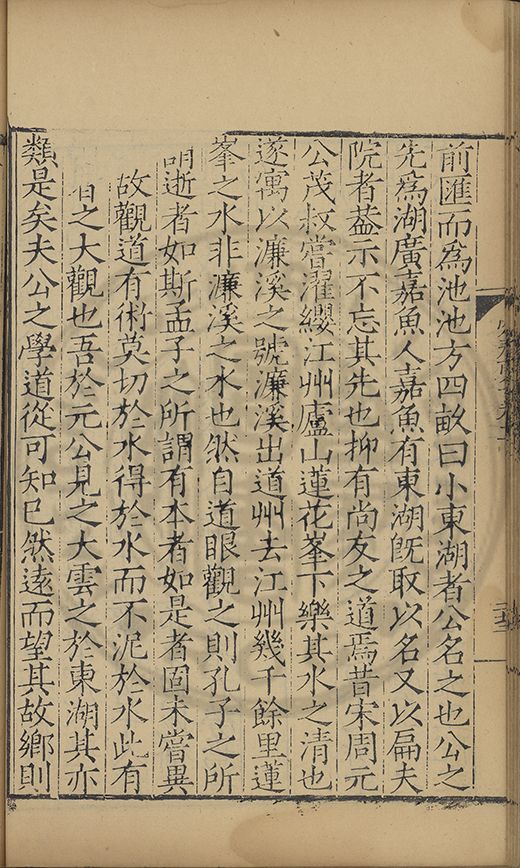 前匯而爲池池方四畝曰小東湖者公名之也公之
先爲湖廣嘉魚人嘉魚有東湖旣取以名又以扁夫
院者葢示不忘其先也抑有尚友之道焉昔宋周元
公茂叔嘗濯纓江州廬山蓮花峯下樂其水之清也
遂寓以濂溪之號濂溪出道州去江州幾千餘里蓮
峯之水非濂溪之水也然自道眼觀之則孔子之所
逝者如斯孟子之所謂有本者如是者固未嘗異
故觀道有術莫切於水得於水而不泥於水此有
之大觀也吾於元公見之大雲之於東湖其亦
類是矣夫公之學道從可知已然遠而望其故鄉則